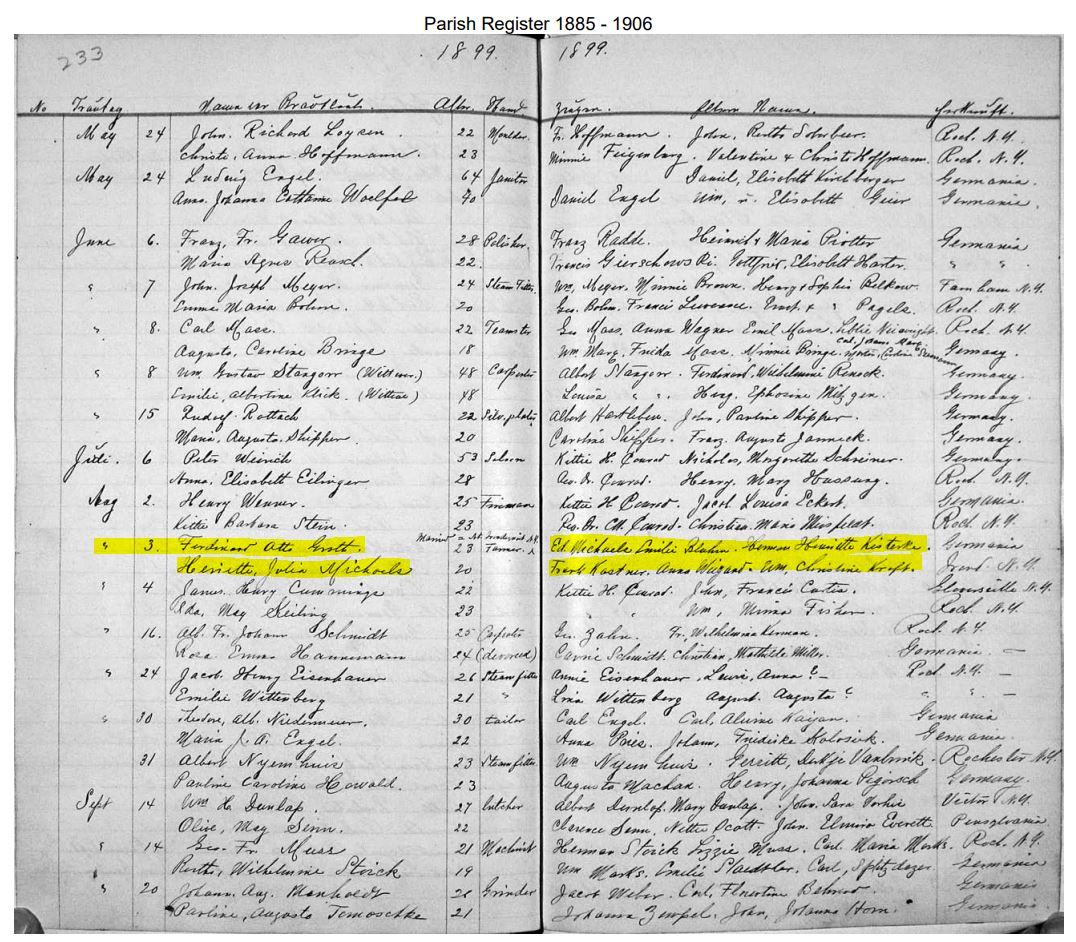 Parish Register 1885 - 1906
233 1899. 1899.
No Trautag Namen der Brautleute. Alter. Stand Zeugen. Eltern Namen. Herkunft.
May 24 John. Richard Loysen. 22 Moulder. Fr. Hoffmann. John, Bertha Roch. N.Y.
Christi. Anna Hoffmann. 23 Minnie Feigenburg. Valentine & Christi Hoffmann. Roch. N.Y.
May 24 Ludwig Engel. 64 Janitor Daniel, Elisabeth Kirchberger Germania.
Anna. Johanna Catharina Woelfel 40 Daniel Engel Wm. u. Elisabeth Geier Germania.
June 6. Franz, Fr. Gawer. 28 Polisher. Franz Radde. Heinrich, Maria Germania
Maria Agnes 22. Francis Elisabeth Harter. " "
" 7 John. Joseph Meyer. 24 Steam Fitter. Wm. Meyer. Minnie Brown. Henry & Sophia Belkow. Farnham N.Y.
Emma Maria Bohm. 20 Geo. Bohm. Francis Ernst & " Pagels. Roch. N.Y.
" 8. Carl Mass. 22 Teamster Geo Mass, Anna Wagner Emil Mass, Roch. N.Y.
Augusta, Caroline Bringe 18 Wm. Frida Mass. Minnie Bringe. Germany.
" 8 Wm. Gustav Stangorr (Wittwer.) 48 Carpenter Albert Stangorr. Ferdinand, Wilhelmine Germany.
Emilie, Albertine Klick. (Wittwe) 48 Louisa " " Germany.
" 15 Rudolf Rottach 22 Albert Hartleben. John, Pauline Shipper. Germany.
Maria, Augusta, Shipper. 20 Caroline Shipper. Franz. Augusta Jannick. Germany.
Juli. 6 Peter Weirich 53 Saloon Kittie H. Conrad Nicholas, Margarethe Schreiner. Germany.
Anna, Elisabeth Eilinger 28 Geo. D. Conrad. Henry, Mary Roch. N.Y.
Aug 2. Henry Wenner. 25 Fireman Kittie H Conrad. Jacob Louisa Eckert. Germania.
Kittie Barbara Stein. 23 Christian, Maria Roch. N.Y.
" 3. Ferdinand Otto Groth. 23 Farmer. Ed. Michaels Emilie Bluhm. Herman Henriette Germania
Henriette, Julia Michaels 20 Frank Kastner. Anna Wizard. Wm Christine Kraft. N.Y.
" 4 James. Henry Cummings 22 Kittie H. Conrad. John, Francis Carter. Gloversville N.Y.
Eda. May Keiling 23 " " Wm, Minna Fisher. Roch. N.Y.
" 16. Alb. Fr. Johann Schmidt 25 Carpenter Geo. Zahn. Fr. Wilhelmina Kerman. Roch. N.Y.
Rosa Emma Hannemann 24 (divorced) Carrie Schmidt. Christian, Mathilde Miller. Germania. —
" 24 Jacob. Henry Eisenhauer 26 Steam fitter Annie Eisenhauer, Anna ? - Roch N.Y. —
Emilie Wittenberg 21 " Lina Wittenberg August. Augusta ? " " —
" 30 Theodore, Alb. Niedermeier. 30 tailor Carl Engel. Carl, Germania
Maria J. A. Engel. 22 Anna Pries. Johann, Fridrike Germania.
31 Albert Nyemhuis 23 Steam fitter. Wm Nyemhuis. Gerritt, Rochester N.Y.
Pauline Caroline Howald. 23 Augusta Machan. Henry, Johanna Germany.
Sept 14 Wm H. Dunlap. 27 butcher Albert Dunlop. Mary Dunlap. John, Sara Victor N.Y.
Olive, May Senn. 22 Clarence Senn, Nettie Scott. John. Elmira Everette Pensylvania.
" 14 Geo. Fr. Muss 21 Machinist Herman Storck Lizzie Muss. Carl Maria Marks. Roch. N.Y.
Bertha, Wilhelmine Storck 19 Wm Marks. Emilie Staedtler. Carl, Germania
" 20 Johann. Aug. Grinder Jacob Weber. Carl, Florentine Germania
Pauline, Augusta Temoschke 21 Johanna Zempel, John, Johanna Horn. Germania.